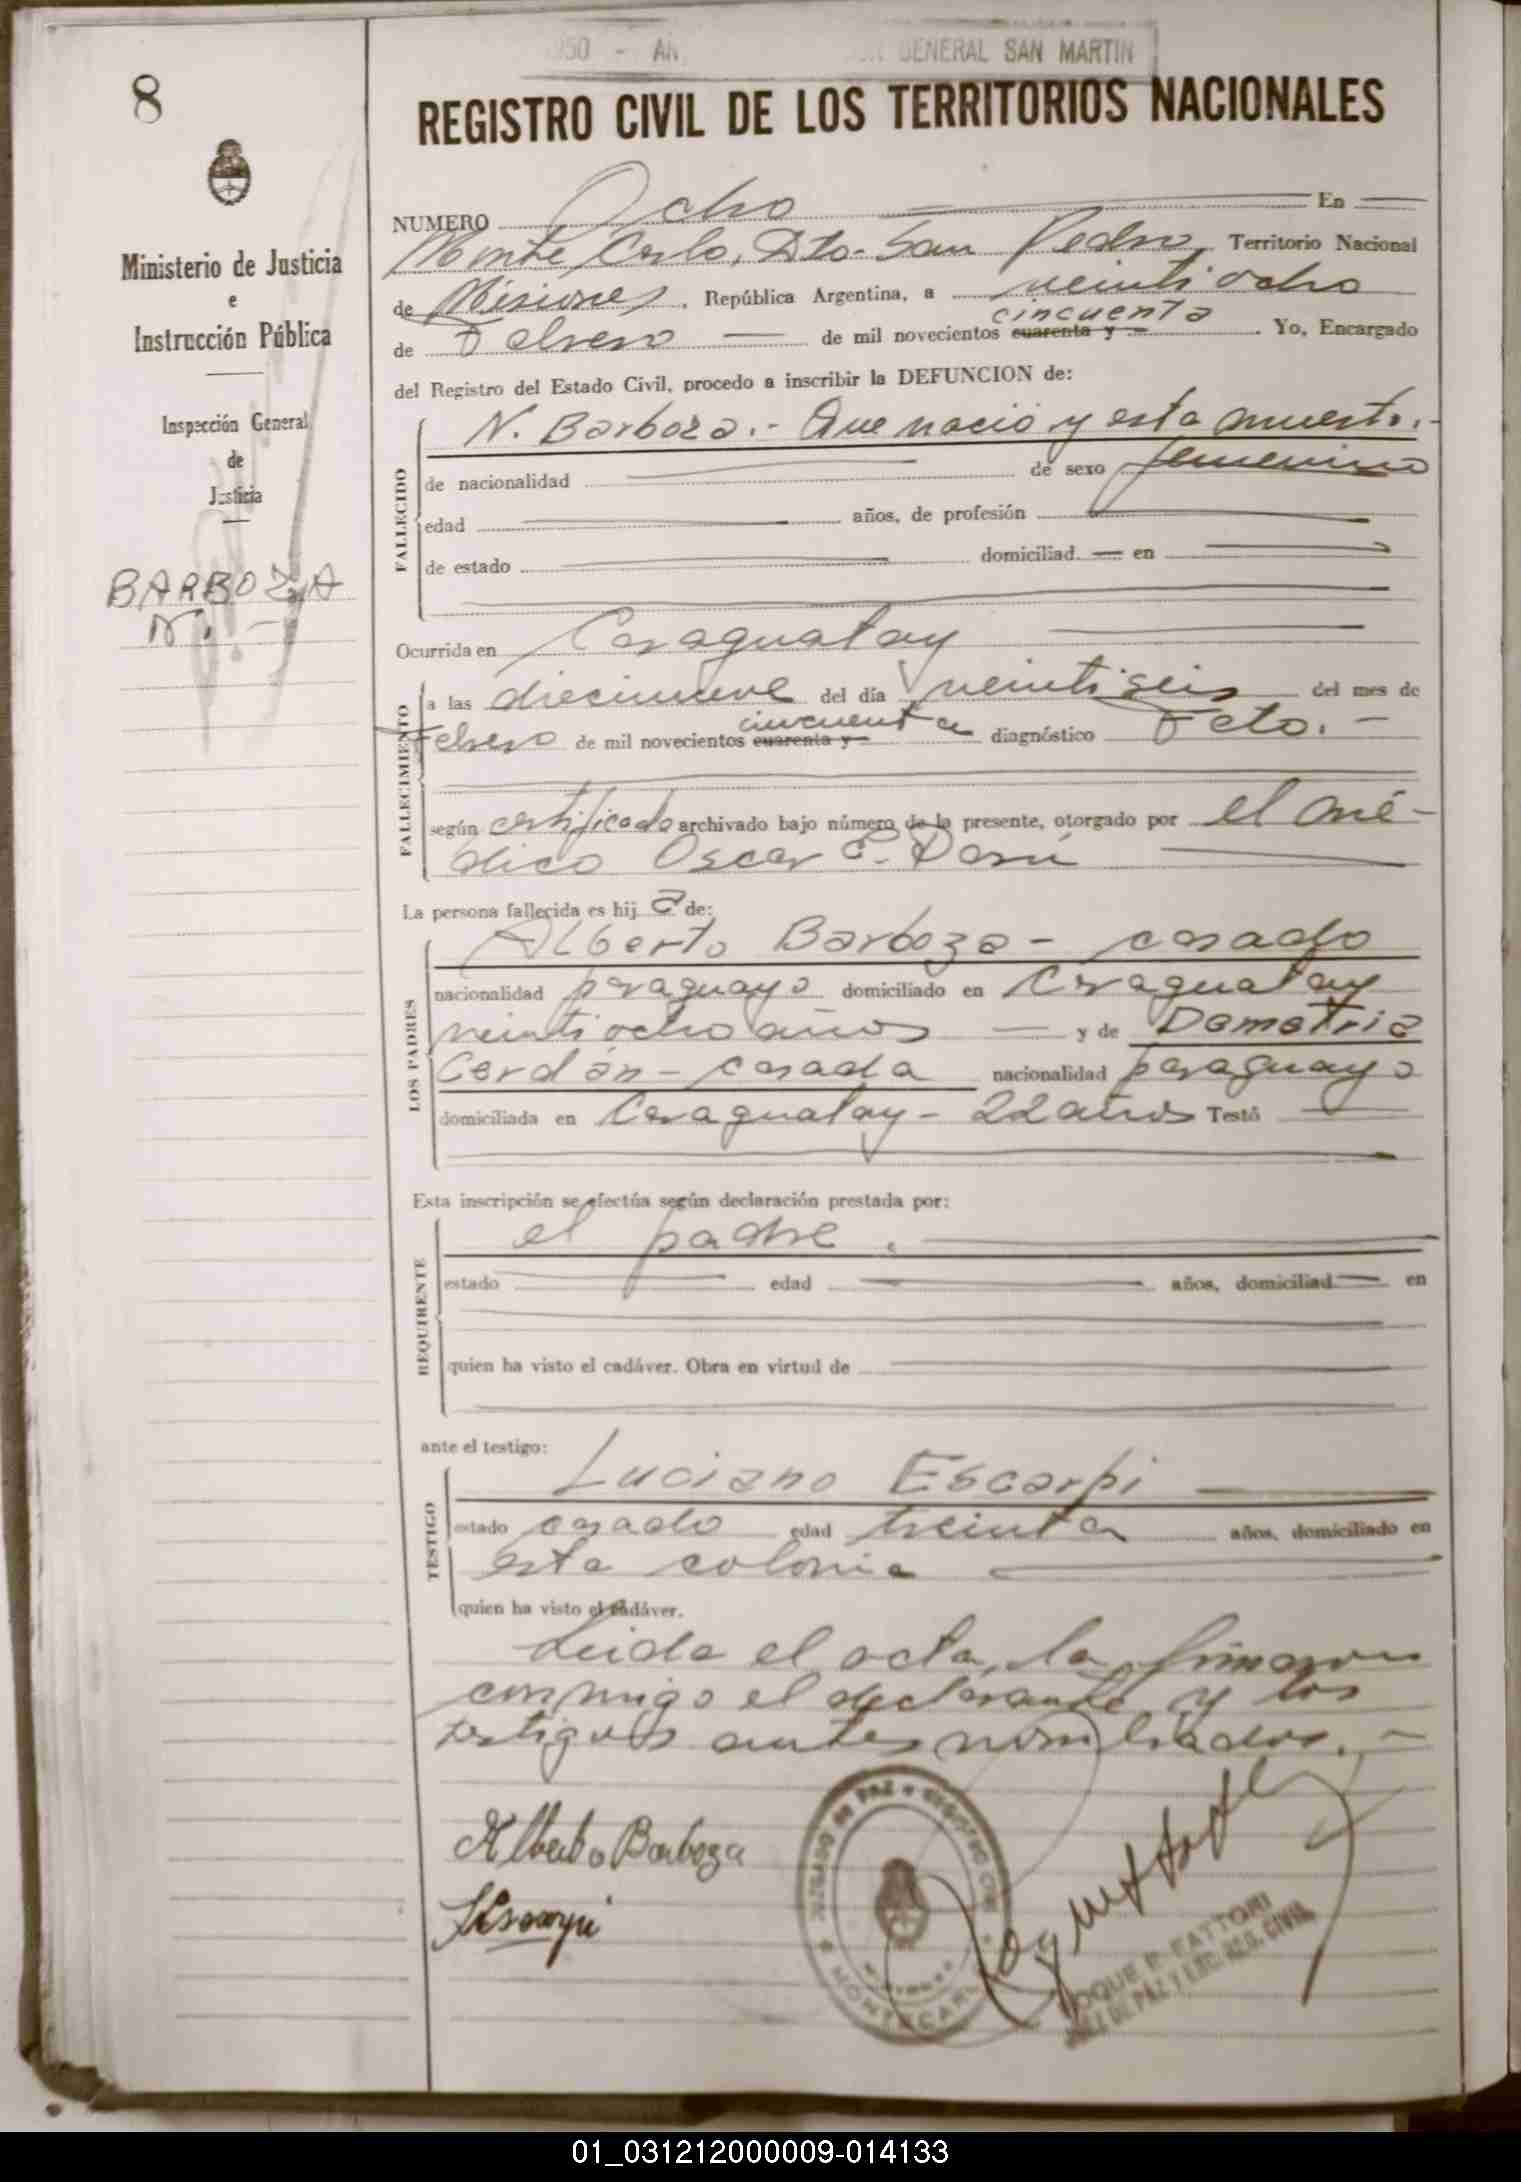 8
Ministerio de Justicia
e
Instrucción Pública
Inspección General
de
Justicia
BARBOZA
N. -
950 - AÑ GENERAL SAN MARTIN
REGISTRO CIVIL DE LOS TERRITORIOS NACIONALES
NUMERO Ocho En
Monte Carlo, Dto. San Pedro, Territorio Nacional
de Misiones, República Argentina, a veintiocho
cincuenta
de Febrero de mil novecientos cuarenta y Yo, Encargado
del Registro del Estado Civil, procedo a inscribir la DEFUNCION de:
FALLECIDO
N. Barboza.- Que nacio y esta muerta.-
de nacionalidad de sexo femenino
edad años, de profesión
de estado domiciliad en
Ocurrida en Caraguatay
FALLECIMIENTO
a las diecinueve del día veintiseis del mes de
cincuenta
Febrero de mil novecientos cuarenta y diagnóstico Feto.-
según certificado archivado bajo número de la presente, otorgado por el mé-
dico Oscar C.
La persona fallecida es hij a de:
LOS PADRES
Alberto Barboza - casado
nacionalidad paraguayo domiciliado en Caraguatay
veintiocho años y de Demetria
Cerdán - casada nacionalidad paraguaya
domiciliada en Caraguatay - 22 años Testó
Esta inscripción se efectúa según declaración prestada por:
REQUIRENTE
el padre.
estado edad años, domiciliad en
quien ha visto el cadáver. Obra en virtud de
ante el testigo:
TESTIGO
Luciano Escarpi
estado casado edad treinta años, domiciliado en
esta colonia
quien ha visto el cadáver.
Leida el acta, la firmaron
conmigo el declarante y los
testigos antes nombrados. -
Alberto Barboza
JUZGADO DE PAZ REGISTRO CIVIL
MISIONES
MONTECARLO
ROQUE P. FATTORI
JUEZ DE PAZ Y ENC. REG. CIVIL
01_031212000009-014133